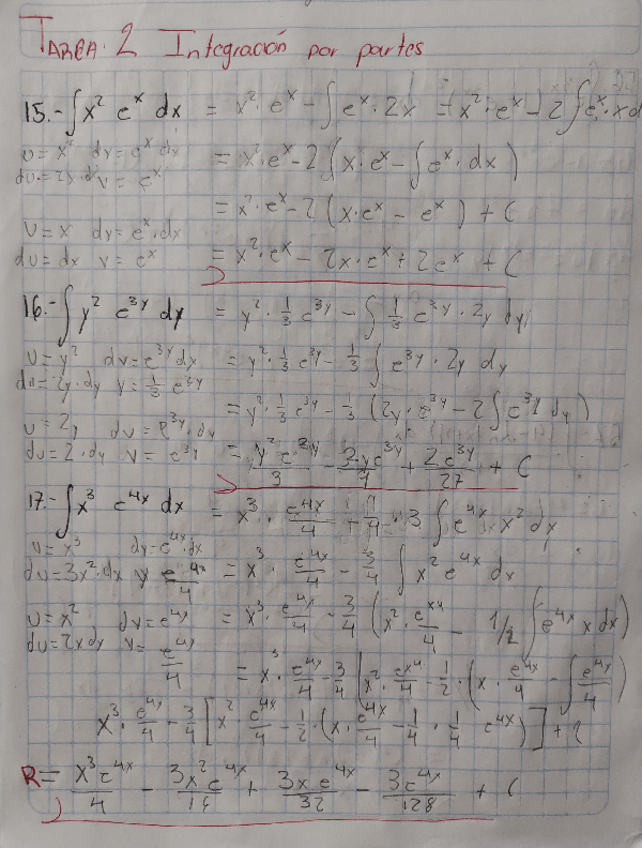 TAREA. 2 Integración por partes
15.- ∫ x² e^x dx = x²·e^x - ∫ e^x·2x = x²·e^x - 2 ∫ e^x·x d
u = x² dv = e^x dx = x²·e^x - 2 (x·e^x - ∫ e^x·dx)
du = 2x·dx v = e^x
= x²·e^x - 2 (x·e^x - e^x) + C
u = x dv = e^x·dx
du = dx v = e^x = x²·e^x - 2x·e^x + 2e^x + C
16.- ∫ y² e^3y dy = y²·1/3 e^3y - ∫ 1/3 e^3y·2y dy
u = y² dv = e^3y dx = y²·1/3 e^3y - 1/3 ∫ e^3y·2y dy
du = 2y·dy v = 1/3 e^3y
= y²·1/3 e^3y - 1/3 (2y·e^3y - 2 ∫ e^3y dy)
u = 2y dv = e^3y·dy
du = 2·dy v = e^3y = y² e^3y/3 - 2ye^3y/9 + 2e^3y/27 + C
17.- ∫ x³ e^4x dx = x³·e^4x/4 ∫ e^4x x² dx
u = x³ dv = e^4x·dx
du = 3x²·dx v e^4x/4 = x³·e^4x/4 - 3/4 ∫ x² e^4x dx
u = x² dv = e^4x = x³·e^4x/4 - 3/4 (x²·e^x4/4 - 1/2 ∫ e^4x x dx)
du = 2x dx v = e^4x/4
= x³·e^4x/4 - 3/4 [x²·e^x4/4 - 1/2·(x·e^4x/4 - ∫ e^4x/4)
x³·e^4x/4 - 3/4 [x²·e^4x/4 - 1/2·(x·e^4x/4 - 1/4·1/4 e^4x)] + C
R = x³e^4x/4 - 3x²e^4x/16 + 3xe^4x/32 - 3e^4x/128 + C